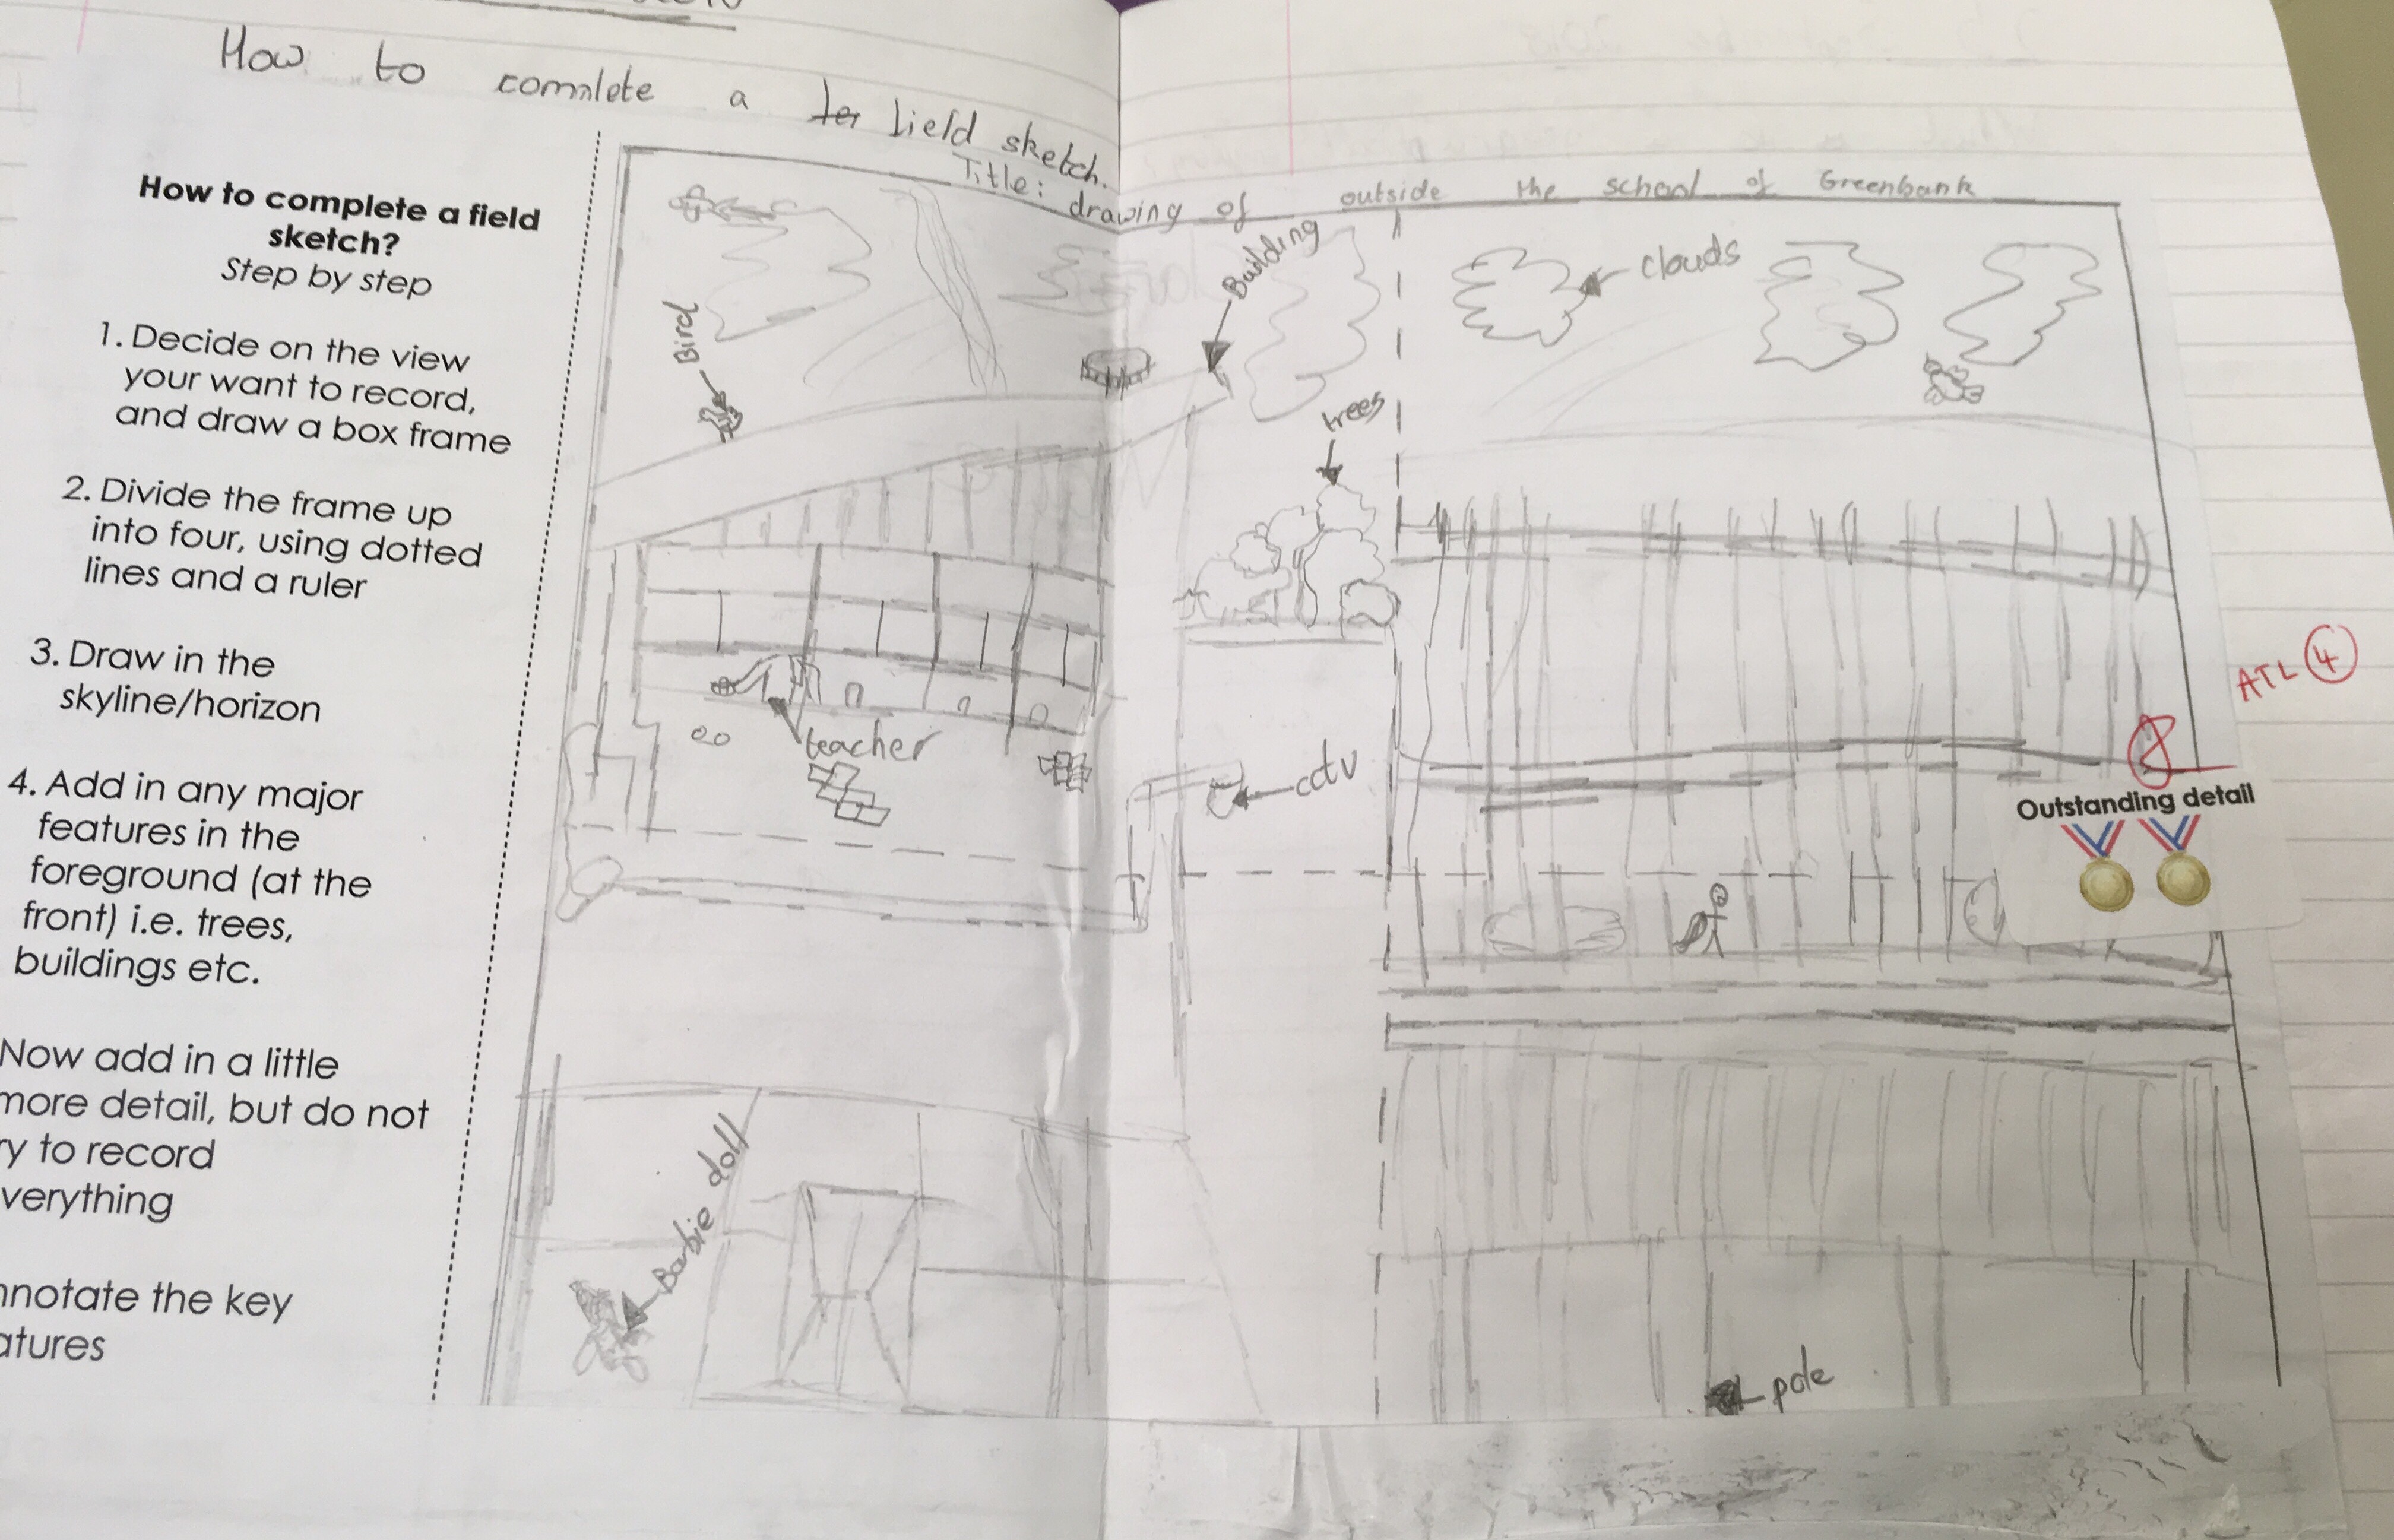 How to comnlete a ter field sketch.
How to complete a field
sketch?
Step by step
1. Decide on the view
your want to record,
and draw a box frame
2. Divide the frame up
into four, using dotted
lines and a ruler
3. Draw in the
skyline/horizon
4. Add in any major
features in the
foreground (at the
front) i.e. trees,
buildings etc.
Now add in a little
more detail, but do not
ry to record
verything
nnotate the key
atures
Title: drawing of outside the school of Greenbank
Bird
Building
clouds
trees
teacher
cctv
Barbie doll
pole
ATL 4
8
Outstanding detail